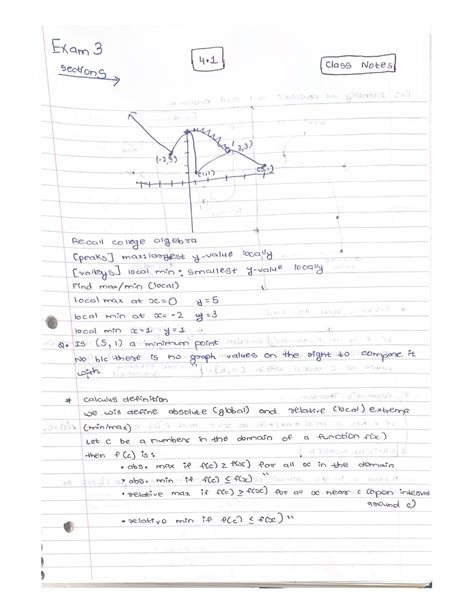 Exam 3
Sections
4.1
Class Notes
(-2,3)
(1,1)
(3,3)
(5,1)
Recall college algebra
[peaks] max: largest y-value locally
[valleys] local min: smallest y-value locally
Find max/min (local)
local max at x=0 y=5
local min at x=-2 y=3
local min x=1 y=1
Q. Is (5,1) a minimum point
No b/c there is no graph values on the right to compare it
with
* Calculus definition
we will define absolute (global) and relative (local) extema
(min/max)
Let c be a numbers in the domain of a function f(x)
then f(c) is:
• abs. max if f(c) ≥ f(x) for all x in the domain
• abs. min if f(c) ≤ f(x) "
• relative max if f(c) ≥ f(x) for all x near c (open interval
around c)
• relative min if f(c) ≤ f(x) "